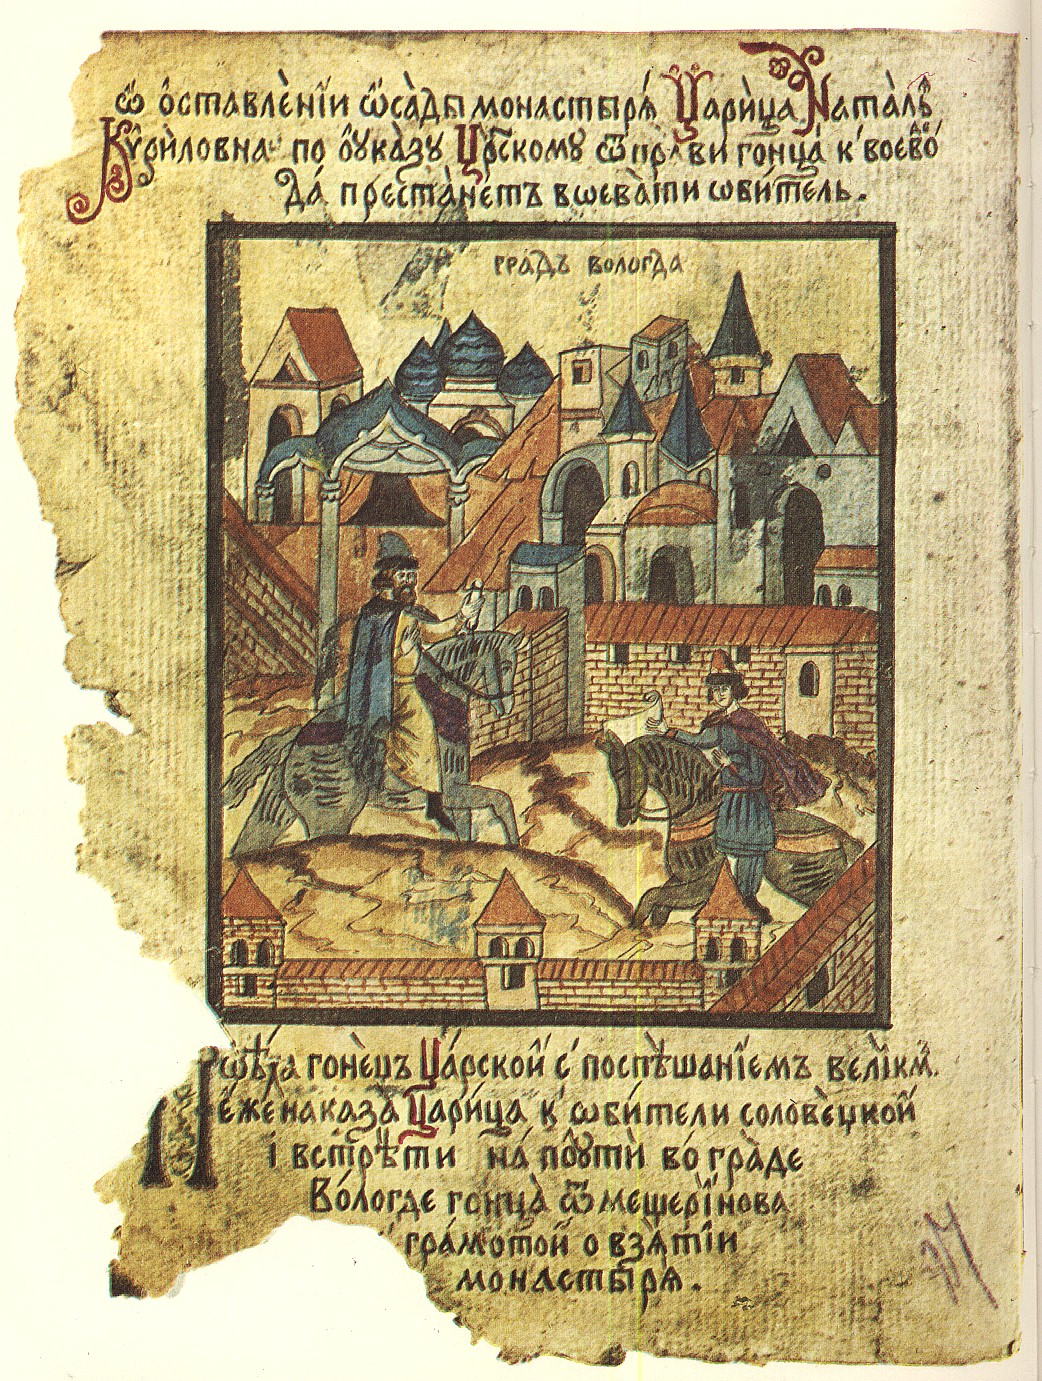 Ѿ ѻставле́нїи ѿса́ды монастыря̀ Цари́ца Ната́лѣ
Кѷри́ловна по ѹ҆ка́зу Цр҃скому ѿправи гонца̀ к̾ воево
да̀ преста́нетъ вѡева́ти ѡби́тель.
градъ вологда
гоне́цъ Ца́рской с̾ поспѣша́нїемъ вели́кѧ.
е́же наказа̀ Цари́ца к̾ ѡби́тели солове́цкой
і встрѣ́ти на̀ пѹтѝ во̀ гра́де
Во́логде гонца̀ ѿ мещери́нова
гра́мотой о взѧ́тїи
монасты́рѧ.